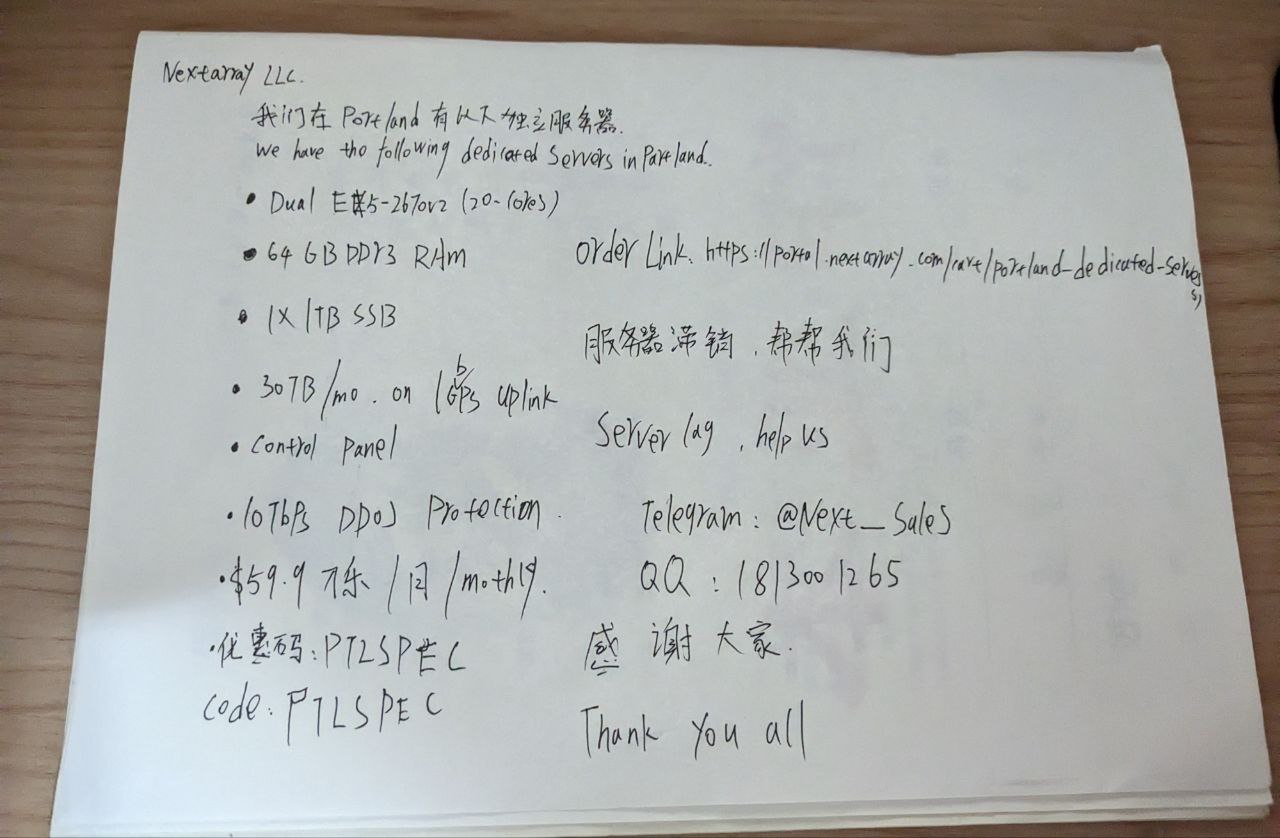 Nextarray LLC.
我们在 Portland 有以下独立服务器.
We have the following dedicated Servers in Partland.
• Dual E5-2670v2 (20-Cores)
• 64 GB DDr3 RAm
• 1X 1TB SSB
• 30TB/mo. on 1Gbps Uplink
• Control Panel
• 10Tbps DDoS Protection.
• $59.9 /月/mothly.
• 优惠码: PTLSPEC
Code: PTLSPEC
Order Link. https://portal.nextarray.com/cart/portland_dedicated-servers/
服务器滞销, 帮帮我们
Server lag, help us
Telegram: @Next_Sales
QQ: 1813001265
感谢大家.
Thank you all